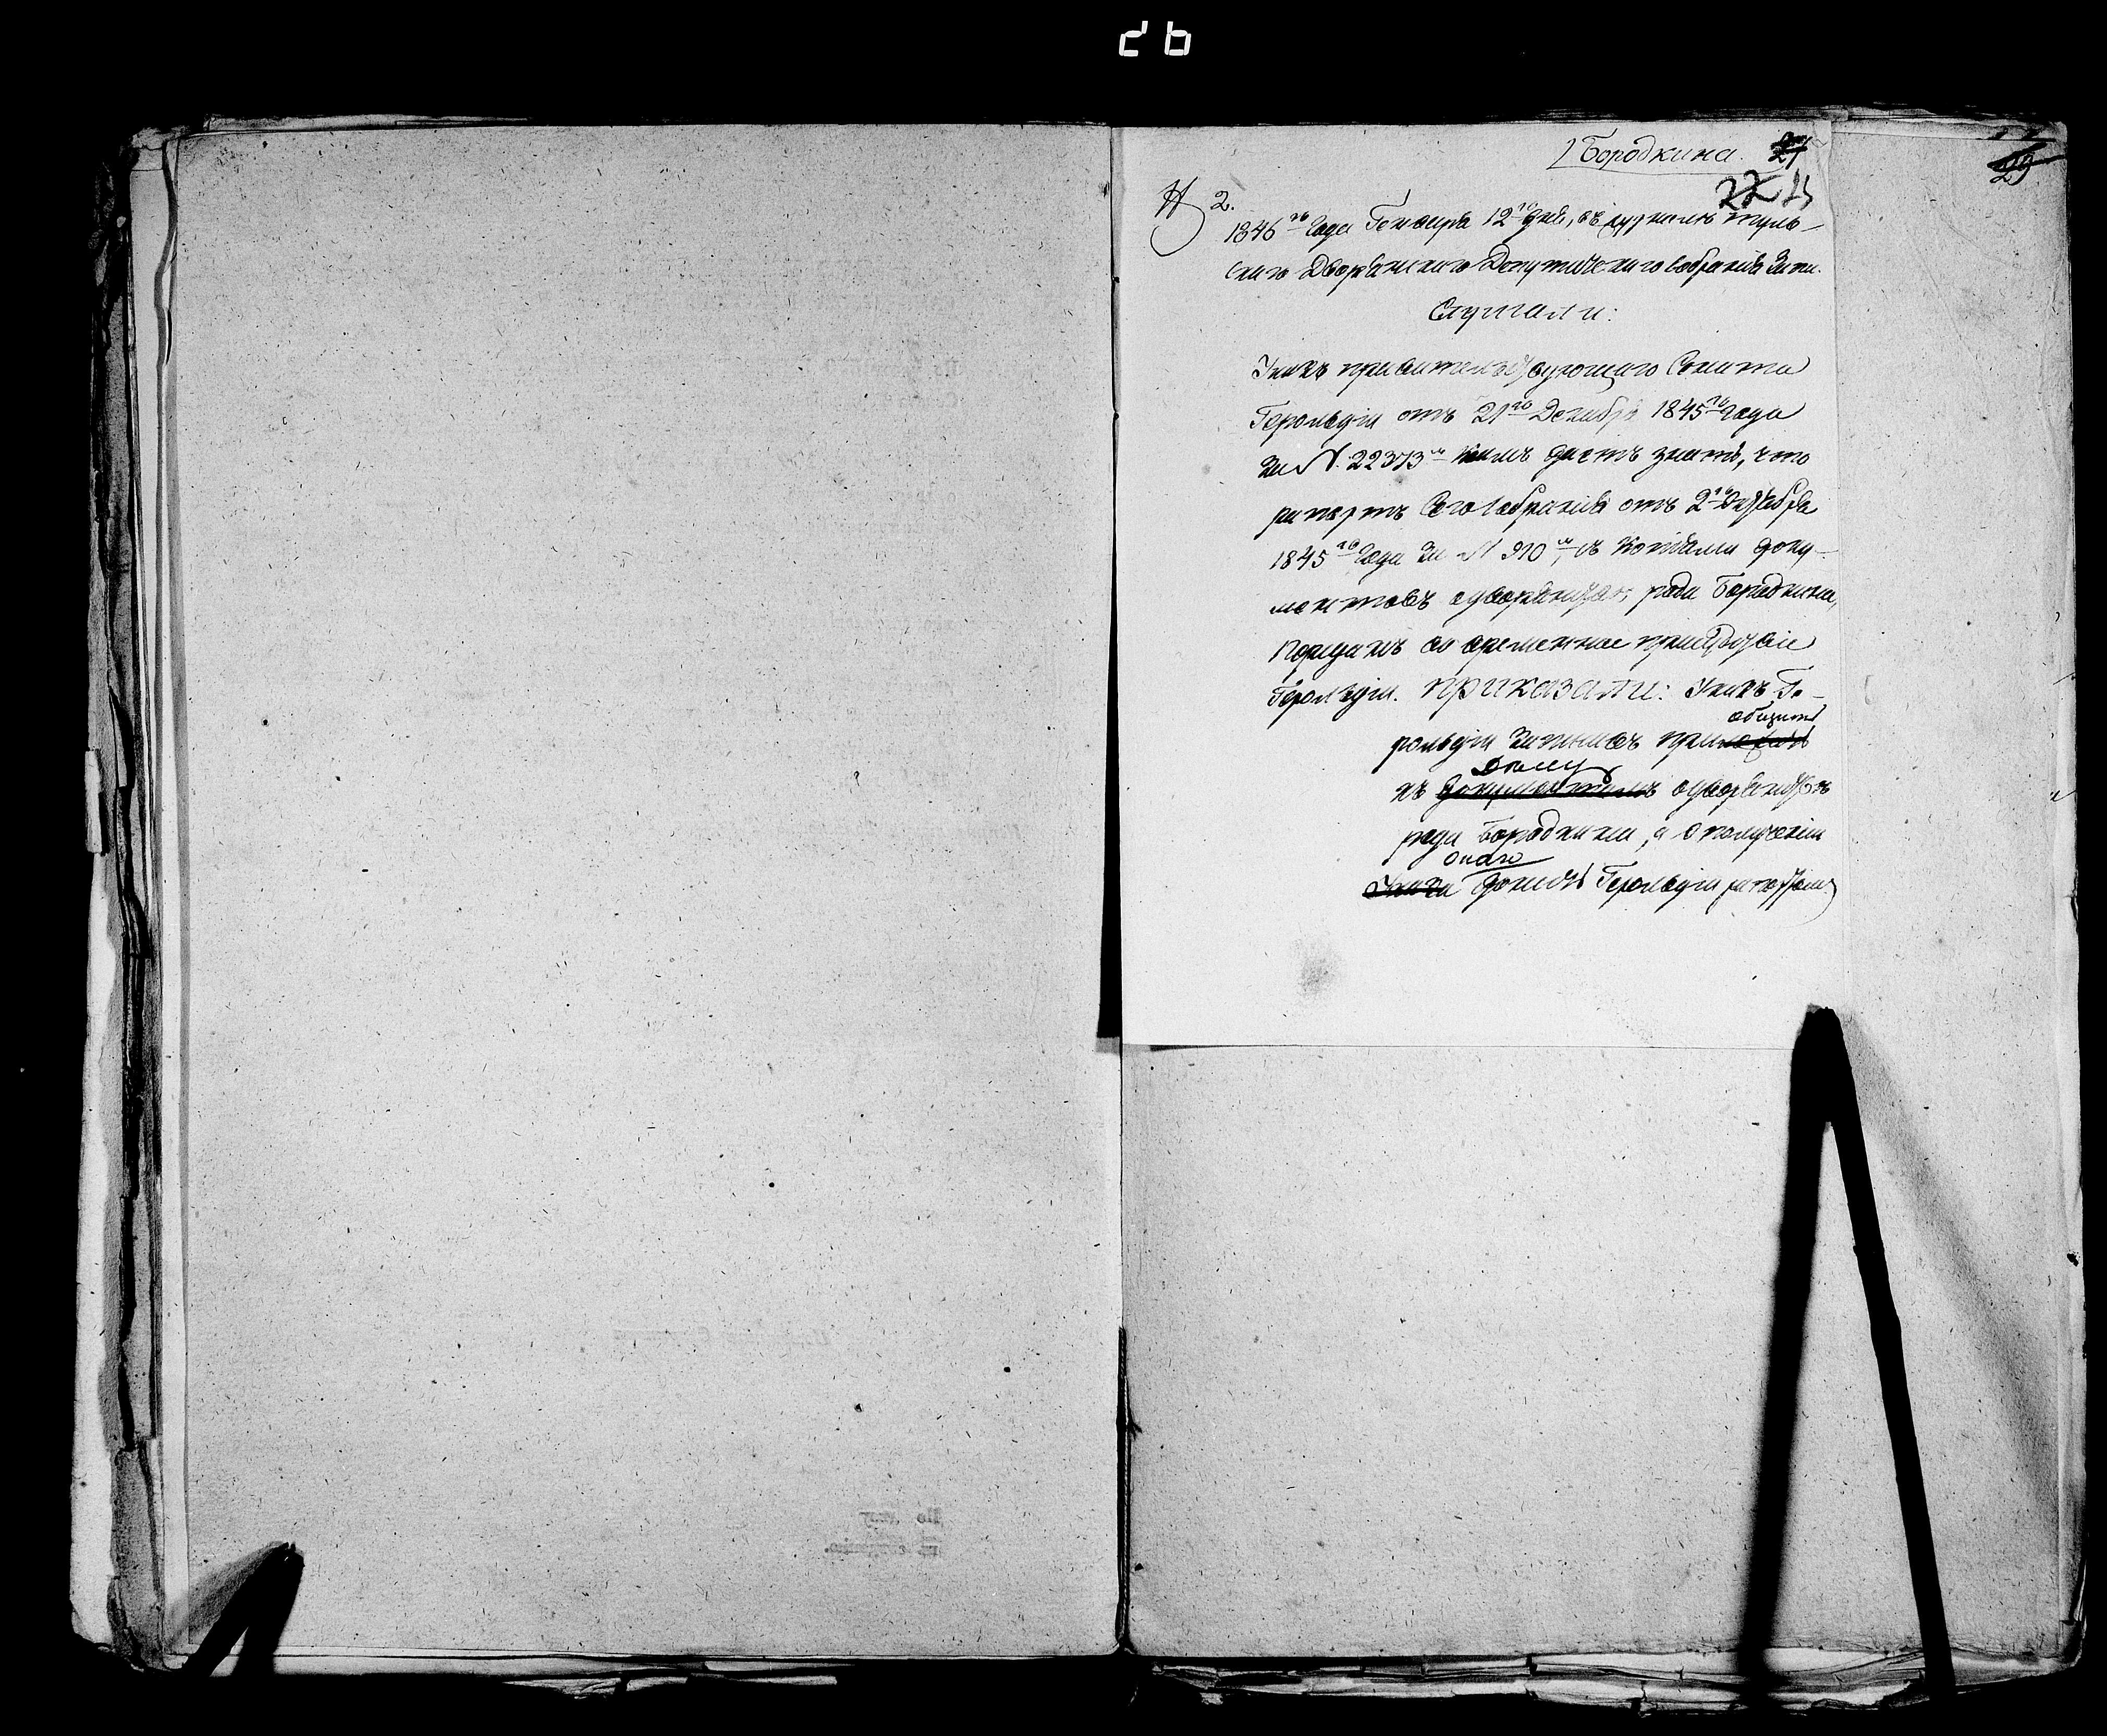 Бородкина. 27
22 23
29
№ 2.
1846го Года Генваря 12го дня, въ журналѣ Туль-
скаго Дворянскаго Депутатскаго Собранія запи.
Слушали:
Указъ правительствующаго Сената
Герольдіи отъ 21го Декабря 1845го Года
за N. 22373м коимъ даетъ знать, что
рапортъ Сего Собранія отъ 2го Декабря
1845го Года за N 910м, съ копіями доку-
ментовъ о дворянствѣ рода Бородкина,
переданъ во временное присутствіе
Герольдіи. Приказали: Указъ Ге-
рольдіи записавъ пріобщить
къ дѣлу о дворянствѣ
рода Бородкина, а о полученіи
онаго донесть Герольдіи рапортомъ.